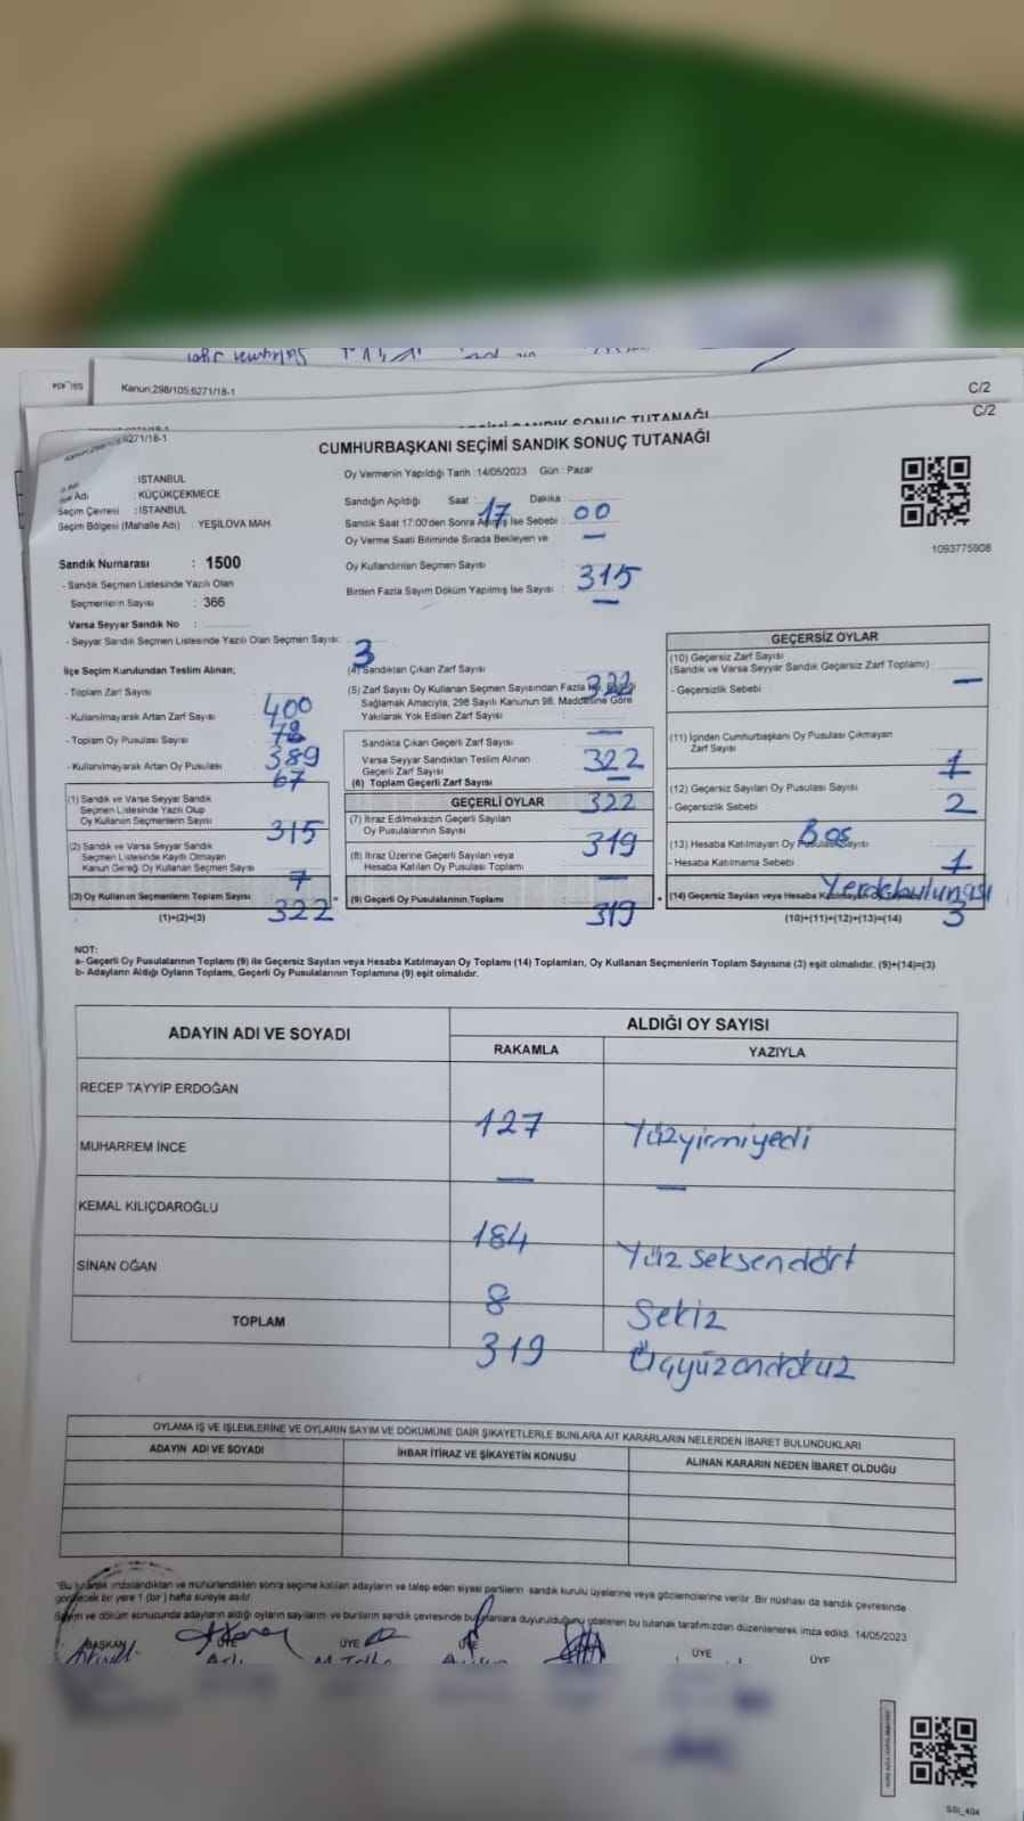 Kanun:298/105;6271/18-1
C/2
C/2
6271/18-1
CUMHURBAŞKANI SEÇİMİ SANDIK SONUÇ TUTANAĞI
Oy Vermenin Yapıldığı Tarih : 14/05/2023 Gün : Pazar
Adı
İSTANBUL
: KÜÇÜKÇEKMECE
Seçim Çevresi : İSTANBUL
Seçim Bölgesi (Mahalle Adı) : YEŞİLOVA MAH
Sandığın Açıldığı Saat : 17 Dakika : 00
Sandık Saat 17:00'den Sonra Açılmış İse Sebebi : —
Oy Verme Saati Bitiminde Sırada Bekleyen ve
Oy Kullandırılan Seçmen Sayısı : 315
Birden Fazla Sayım Döküm Yapılmış İse Sayısı : —
1093775908
Sandık Numarası : 1500
- Sandık Seçmen Listesinde Yazılı Olan
Seçmenlerin Sayısı : 366
Varsa Seyyar Sandık No :
- Seyyar Sandık Seçmen Listesinde Yazılı Olan Seçmen Sayısı: 3
İlçe Seçim Kurulundan Teslim Alınan;
- Toplam Zarf Sayısı 400
- Kullanılmayarak Artan Zarf Sayısı 78
- Toplam Oy Pusulası Sayısı 389
- Kullanılmayarak Artan Oy Pusulası 67
(1) Sandık ve Varsa Seyyar Sandık
Seçmen Listesinde Yazılı Olup
Oy Kullanan Seçmenlerin Sayısı 315
(2) Sandık ve Varsa Seyyar Sandık
Seçmen Listesinde Kayıtlı Olmayan
Kanun Gereği Oy Kullanan Seçmen Sayısı 7
(3) Oy Kullanan Seçmenlerin Toplam Sayısı 322
(1)+(2)=(3)
(4) Sandıktan Çıkan Zarf Sayısı 322
(5) Zarf Sayısı Oy Kullanan Seçmen Sayısından Fazla
Sağlamak Amacıyla, 298 Sayılı Kanunun 98. Maddesine Göre
Yakılarak Yok Edilen Zarf Sayısı —
Sandıkta Çıkan Geçerli Zarf Sayısı 322
Varsa Seyyar Sandıktan Teslim Alınan
Geçerli Zarf Sayısı —
(6) Toplam Geçerli Zarf Sayısı 322
GEÇERLİ OYLAR
(7) İtiraz Edilmeksizin Geçerli Sayılan
Oy Pusulalarının Sayısı 319
(8) İtiraz Üzerine Geçerli Sayılan veya
Hesaba Katılan Oy Pusulası Toplamı —
(9) Geçerli Oy Pusulalarının Toplamı 319
GEÇERSİZ OYLAR
(10) Geçersiz Zarf Sayısı
(Sandık ve Varsa Seyyar Sandık Geçersiz Zarf Toplamı) —
- Geçersizlik Sebebi
(11) İçinden Cumhurbaşkanı Oy Pusulası Çıkmayan
Zarf Sayısı 1
(12) Geçersiz Sayılan Oy Pusulası Sayısı 2
- Geçersizlik Sebebi Boş
(13) Hesaba Katılmayan Oy Pusulası Sayısı 1
- Hesaba Katılmama Sebebi Yerde bulunması
(14) Geçersiz Sayılan veya Hesaba Katılmayan 3
(10)+(11)+(12)+(13)=(14)
NOT:
a- Geçerli Oy Pusulalarının Toplamı (9) ile Geçersiz Sayılan veya Hesaba Katılmayan Oy Toplamı (14) Toplamları, Oy Kullanan Seçmenlerin Toplam Sayısına (3) eşit olmalıdır. (9)+(14)=(3)
b- Adayların Aldığı Oyların Toplamı, Geçerli Oy Pusulalarının Toplamına (9) eşit olmalıdır.
ADAYIN ADI VE SOYADI
ALDIĞI OY SAYISI
RAKAMLA YAZIYLA
RECEP TAYYİP ERDOĞAN 127 Yüzyirmiyedi
MUHARREM İNCE — —
KEMAL KILIÇDAROĞLU 184 Yüz seksendört
SİNAN OĞAN 8 Sekiz
TOPLAM 319 Üçyüzondokuz
OYLAMA İŞ VE İŞLEMLERİNE VE OYLARIN SAYIM VE DÖKÜMÜNE DAİR ŞİKAYETLERLE BUNLARA AİT KARARLARIN NELERDEN İBARET BULUNDUKLARI
ADAYIN ADI VE SOYADI İHBAR İTİRAZ VE ŞİKAYETİN KONUSU ALINAN KARARIN NEDEN İBARET OLDUĞU
*Bu tutanak imzalandıktan ve mühürlendikten sonra seçime katılan adayların ve talep eden siyasi partilerin sandık kurulu üyelerine veya gözlemcilerine verilir. Bir nüshası da sandık çevresinde
görülecek bir yere 1 (bir) hafta süreyle asılır
Sayım ve döküm sonucunda adayların aldığı oyların sayılarını ve bunların sandık çevresinde bulunanlara duyurulduğunu gösteren bu tutanak tarafımızdan düzenlenerek imza edildi. 14/05/2023
BAŞKAN ÜYE ÜYE ÜYE ÜYE ÜYE